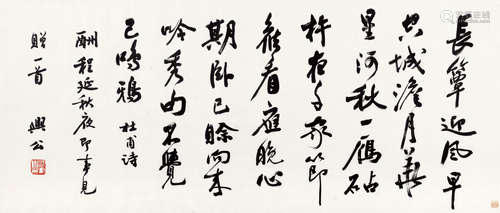 長簟迎風早
空城澹月華
星河秋一雁砧
杵夜千家節
候看應晚心
期臥已賒向來
吟秀句不覺
已鳴鴉 杜甫詩
酬程延秋夜即事見
贈一首 興公